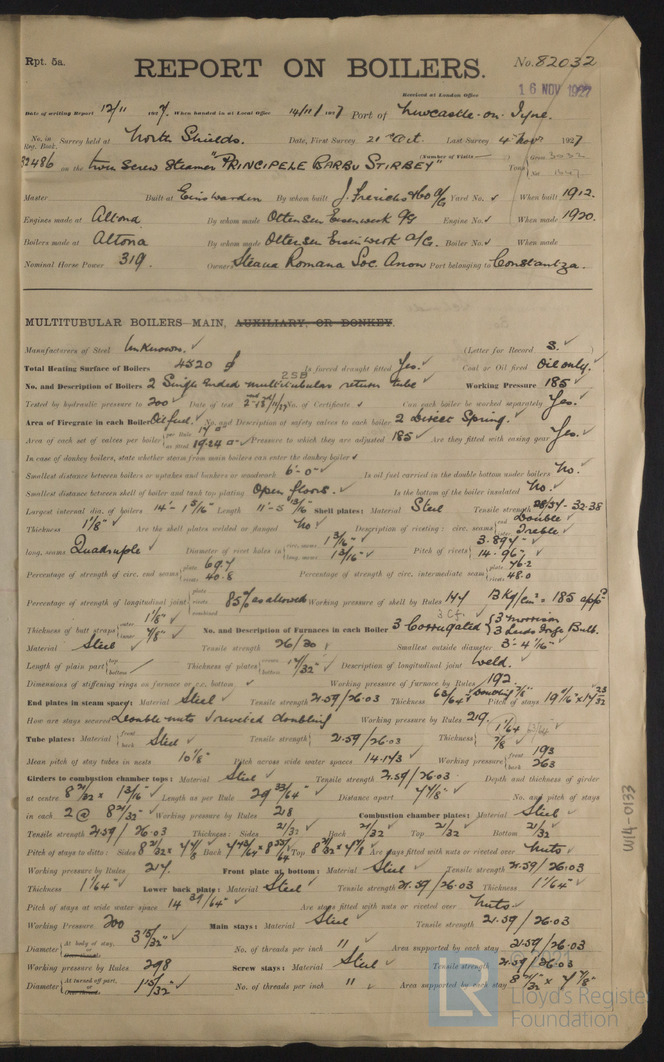 Rpt. 5a.
No. 82032
REPORT ON BOILERS.
Received at London Office
16 NOV 1927
Date of writing Report 12/11 1927. When handed in at Local Office 14/11/1927 Port of Newcastle-on-Tyne.
No. in Reg. Book. Survey held at North Shields. Date, First Survey 21st Oct. Last Survey 4th Nov. 1927
32486 on the twin Screw Steamer "PRINCIPELE BARBU STIRBEY" (Number of Visits ) Tons Gross 3032 Net
Master Built at Einswarden By whom built J. Frerichs & Co A/G Yard No. ✓ When built 1912.
Engines made at Altona By whom made Ottensen Eisenwerk A/G Engine No. ✓ When made 1920.
Boilers made at Altona By whom made Ottensen Eisenwerk A/G. Boiler No. ✓ When made
Nominal Horse Power 319. Owners Steaua Romana Soc. Anon Port belonging to Constantza.
MULTITUBULAR BOILERS—MAIN, AUXILIARY, OR DONKEY.
Manufacturers of Steel Unknown. (Letter for Record S.)
Total Heating Surface of Boilers 4520 Is forced draught fitted Yes. Coal or Oil fired Oil only.
258
No. and Description of Boilers 2 Single Ended multitubular return tube Working Pressure 185
Tested by hydraulic pressure to 200 Date of test No. of Certificate ✓ Can each boiler be worked separately Yes.
Area of Firegrate in each Boiler Oil fuel. No. and Description of safety valves to each boiler 2 Direct Spring.
Area of each set of valves per boiler per Rule 17 as fitted 19.24 Pressure to which they are adjusted 185 Are they fitted with easing gear Yes.
In case of donkey boilers, state whether steam from main boilers can enter the donkey boiler ✓
Smallest distance between boilers or uptakes and bunkers or woodwork 6'-0" Is oil fuel carried in the double bottom under boilers No.
Smallest distance between shell of boiler and tank top plating Open floors. Is the bottom of the boiler insulated No.
Largest internal dia. of boilers 14'-1 5/16" Length 11'-5 13/16" Shell plates: Material Steel Tensile strength 28/34-32.38
Thickness 1 1/8" Are the shell plates welded or flanged No Description of riveting: circ. seams end Double inter. Treble
long. seams Quadruple Diameter of rivet holes in circ. seams 1 3/16" long. seams 1 3/16" Pitch of rivets 3.894" 14.96"
Percentage of strength of circ. end seams plate 69.7 rivets 40.8 Percentage of strength of circ. intermediate seam plate 76.2 rivets 48.0
Percentage of strength of longitudinal joint plate rivets combined 85% as allowed Working pressure of shell by Rules 144 13 Kg/cm² = 185 app?
Thickness of butt straps outer 1 1/8" inner 7/8" No. and Description of Furnaces in each Boiler 3 Corrugated 3 Morrison 3 Leeds Forge Bulb.
Material Steel Tensile strength 26/30 Smallest outside diameter 3'-4 1/16"
Length of plain part top bottom Thickness of plates crown bottom 17/32" Description of longitudinal joint Weld.
Dimensions of stiffening rings on furnace or c.c. bottom ✓ Working pressure of furnace by Rules 192
End plates in steam space: Material Steel Tensile strength 21.59/26.03 Thickness 63/64" Doubling 7/8" Pitch of stays
How are stays secured Double nuts & riveted doubling Working pressure by Rules 219.
Tube plates: Material front back Steel Tensile strength 21.59/26.03 Thickness 1 1/64 7/8"
Mean pitch of stay tubes in nests 10 1/8" Pitch across wide water spaces 14.17/3 Working pressure front 193 back 263
Girders to combustion chamber tops: Material Steel Tensile strength 21.59/26.03 Depth and thickness of girder
at centre 8 21/32" x 13/16" Length as per Rule 29 33/64" Distance apart 7 7/8" No. and pitch of stays
in each 2 @ 8 21/32" Working pressure by Rules 218 Combustion chamber plates: Material Steel
Tensile strength 21.59/26.03 Thickness: Sides 21/32 Back 21/32 Top 21/32 Bottom 21/32
Pitch of stays to ditto: Sides 8 21/32" x 7 7/8 Back Top 8 21/32" x 7 7/8 Are stays fitted with nuts or riveted over Nuts
Working pressure by Rules 214. Front plate at bottom: Material Steel Tensile strength 21.59/26.03
Thickness 1 1/64" Lower back plate: Material Steel Tensile strength 21.59/26.03 Thickness 1 1/64"
Pitch of stays at wide water space 14 39/64" Are stays fitted with nuts or riveted over Nuts.
Working Pressure 200 Main stays: Material Steel Tensile strength 21.59/26.03
Diameter At body of stay, or Over threads 3 15/32" No. of threads per inch 11 Area supported by each stay 21.59/26.03
Working pressure by Rules 298 Screw stays: Material Steel Tensile strength 21.59/26.03
Diameter At turned off part, or Over threads 1 15/32" No. of threads per inch 11 Area supported by each stay 8 21/32" x 7 7/8"
W14-0133
© 2021
LR
Lloyd's Register
Foundation